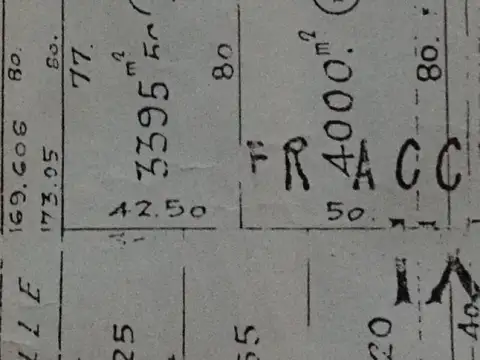 169.606 80.
173.95 80.
77.
3395 m²
80
4000. m²
80.
FRACC
42.50
50.
LLE
25
55
20
40